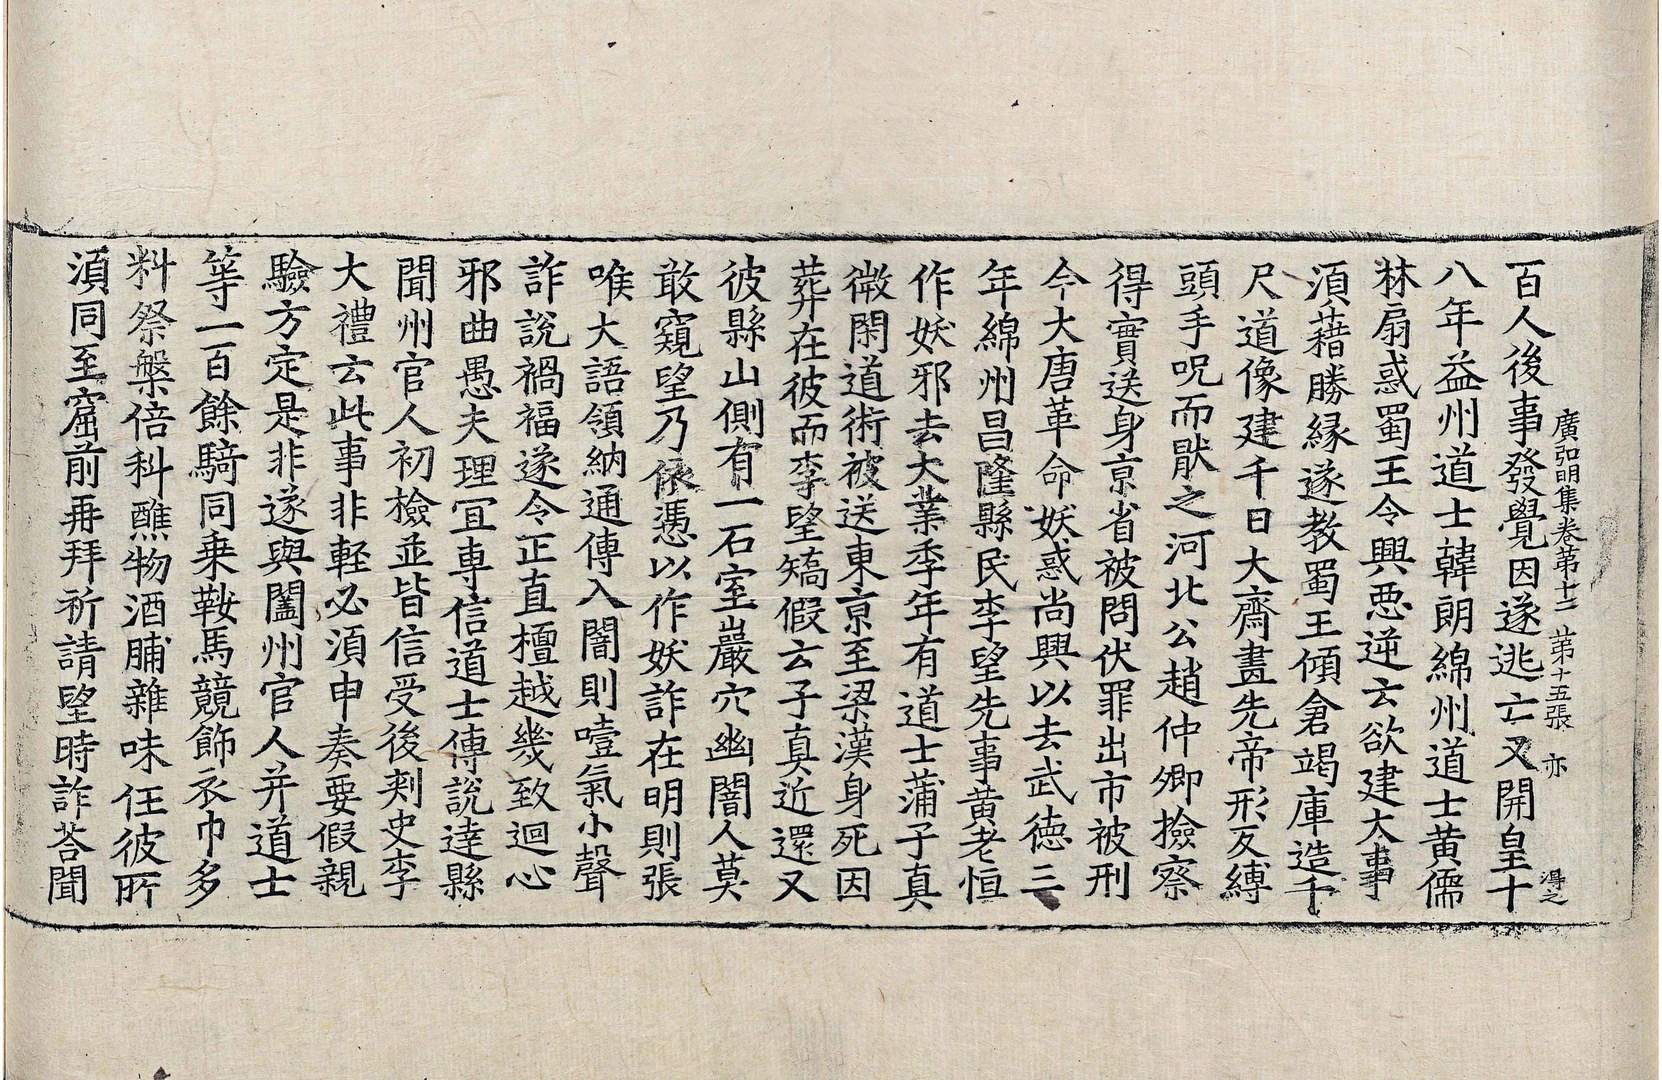 廣弘明集卷第十二 第十五張 亦 得之
百人後事發覺因遂逃亡又開皇十
八年益州道士韓朗綿州道士黃儒
林扇惑蜀王令興惡逆云欲建大事
湏藉勝緣遂教蜀王傾倉竭庫造千
尺道像建千日大齋畫先帝形反縛
頭手呪而猒之河北公趙仲卿撿察
得實送身京省被問伏罪出市被刑
今大唐革命妖惑尚興以去武德三
年綿州昌隆縣民李望先事黃老恒
作妖邪去大業季年有道士蒲子真
微閑道術被送東京至梁漢身死因
葬在彼而李望矯假云子真近還又
彼縣山側有一石室巖穴幽闇人莫
敢窺望乃依憑以作妖詐在明則張
喉大語領納通傳入闇則噎氣小聲
詐說禍福遂令正直檀越幾致迴心
邪曲愚夫理冝專信道士傳說達縣
聞州官人初檢並皆信受後刾史李
大禮云此事非軽必湏申奏要假親
驗方定是非遂與闔州官人并道士
等一百餘騎同乗鞍馬競飾衣巾多
料祭槃倍科醮物酒脯雜味任彼所
湏同至窟前再拜祈請望時詐荅聞